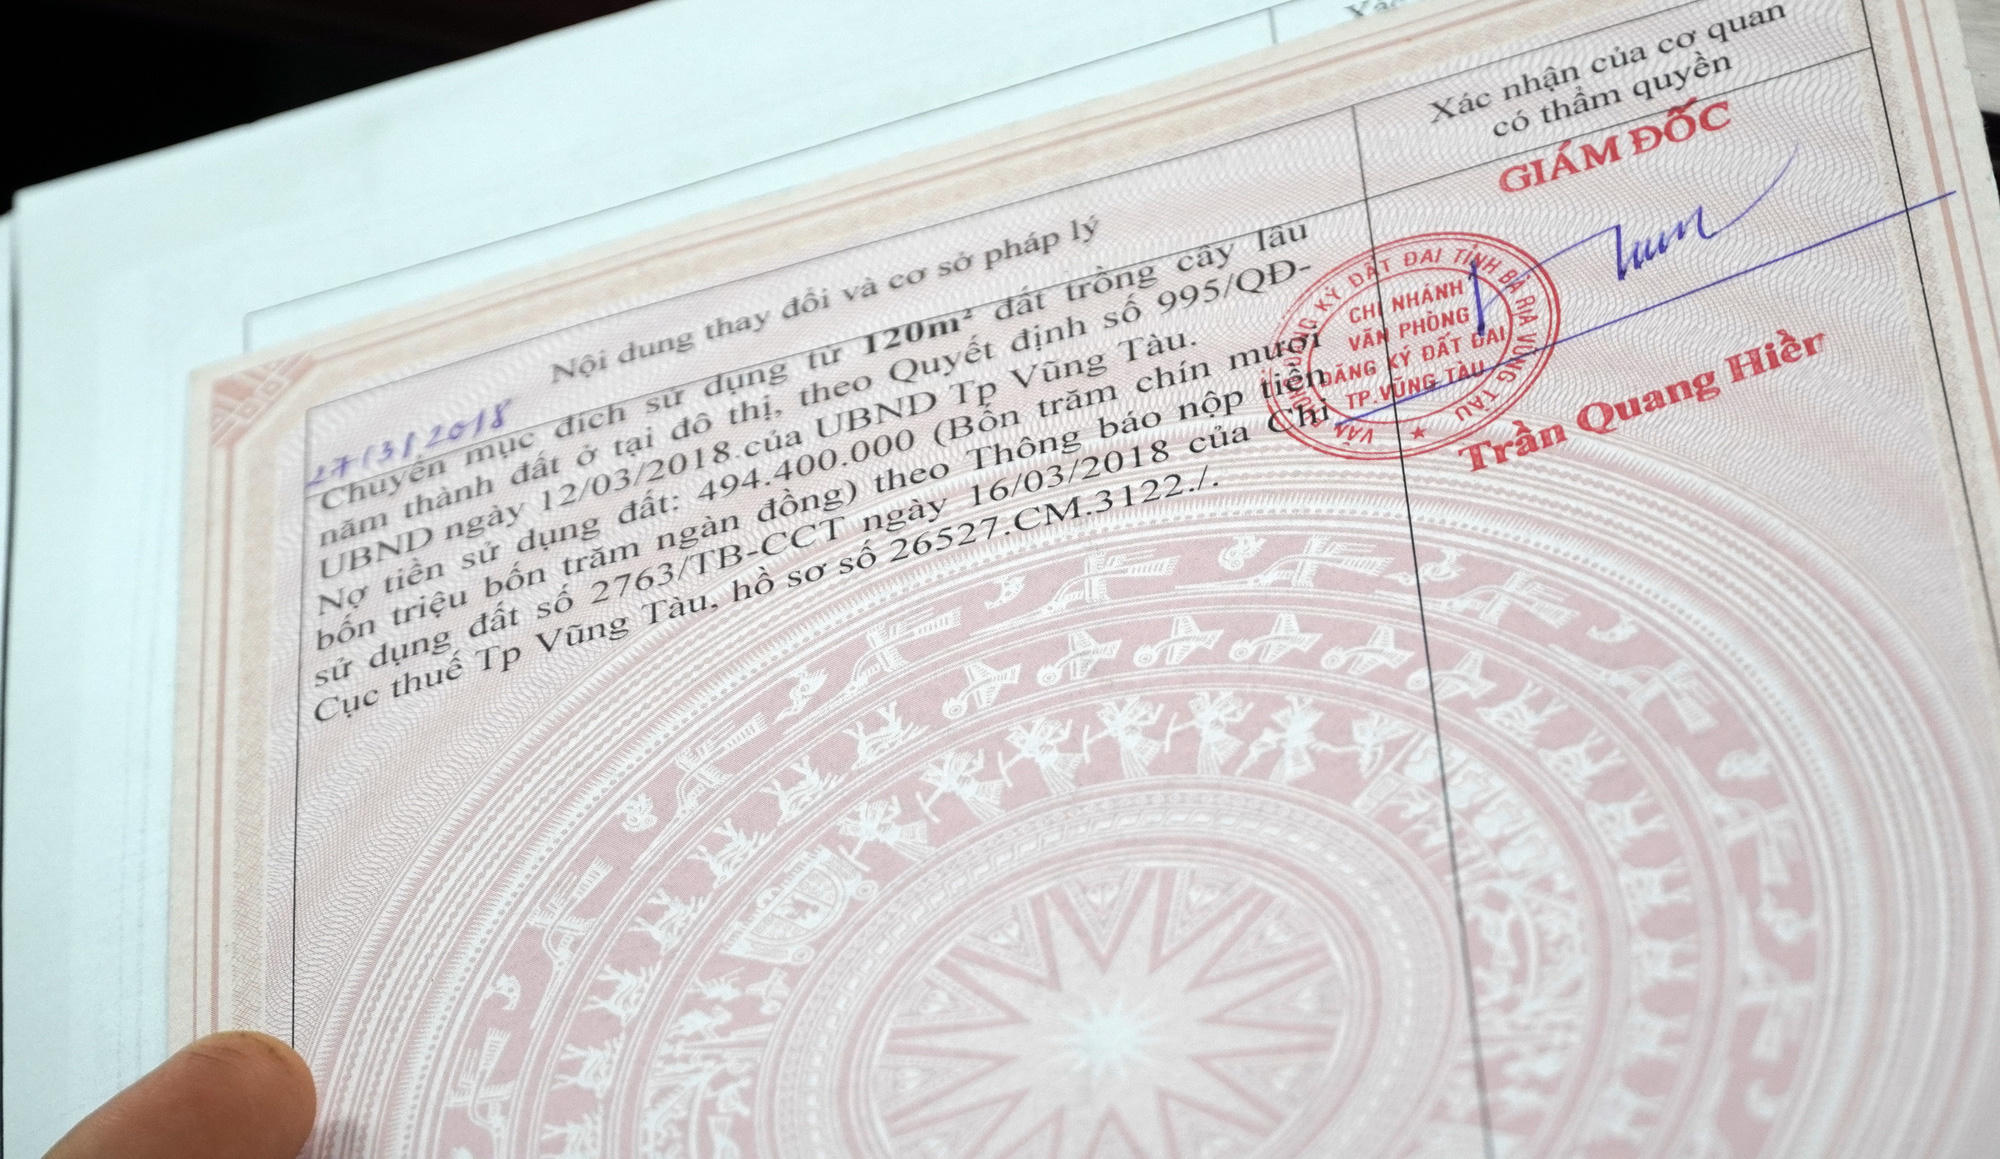 Nội dung thay đổi và cơ sở pháp lý
Xác nhận của cơ quan
có thẩm quyền
27/3/2018
Chuyển mục đích sử dụng từ 120m² đất trồng cây lâu
năm thành đất ở tại đô thị, theo Quyết định số 995/QĐ-
UBND ngày 12/03/2018 của UBND Tp Vũng Tàu.
Nợ tiền sử dụng đất: 494.400.000 (Bốn trăm chín mươi
bốn triệu bốn trăm ngàn đồng) theo Thông báo nộp tiền
sử dụng đất số 2763/TB-CCT ngày 16/03/2018 của Chi
Cục thuế Tp Vũng Tàu, hồ sơ số 26527.CM.3122./.
GIÁM ĐỐC
VĂN PHÒNG ĐĂNG KÝ ĐẤT ĐAI TỈNH BÀ RỊA VŨNG TÀU
CHI NHÁNH
VĂN PHÒNG
ĐĂNG KÝ ĐẤT ĐAI
TP.VŨNG TÀU
Trần Quang Hiền